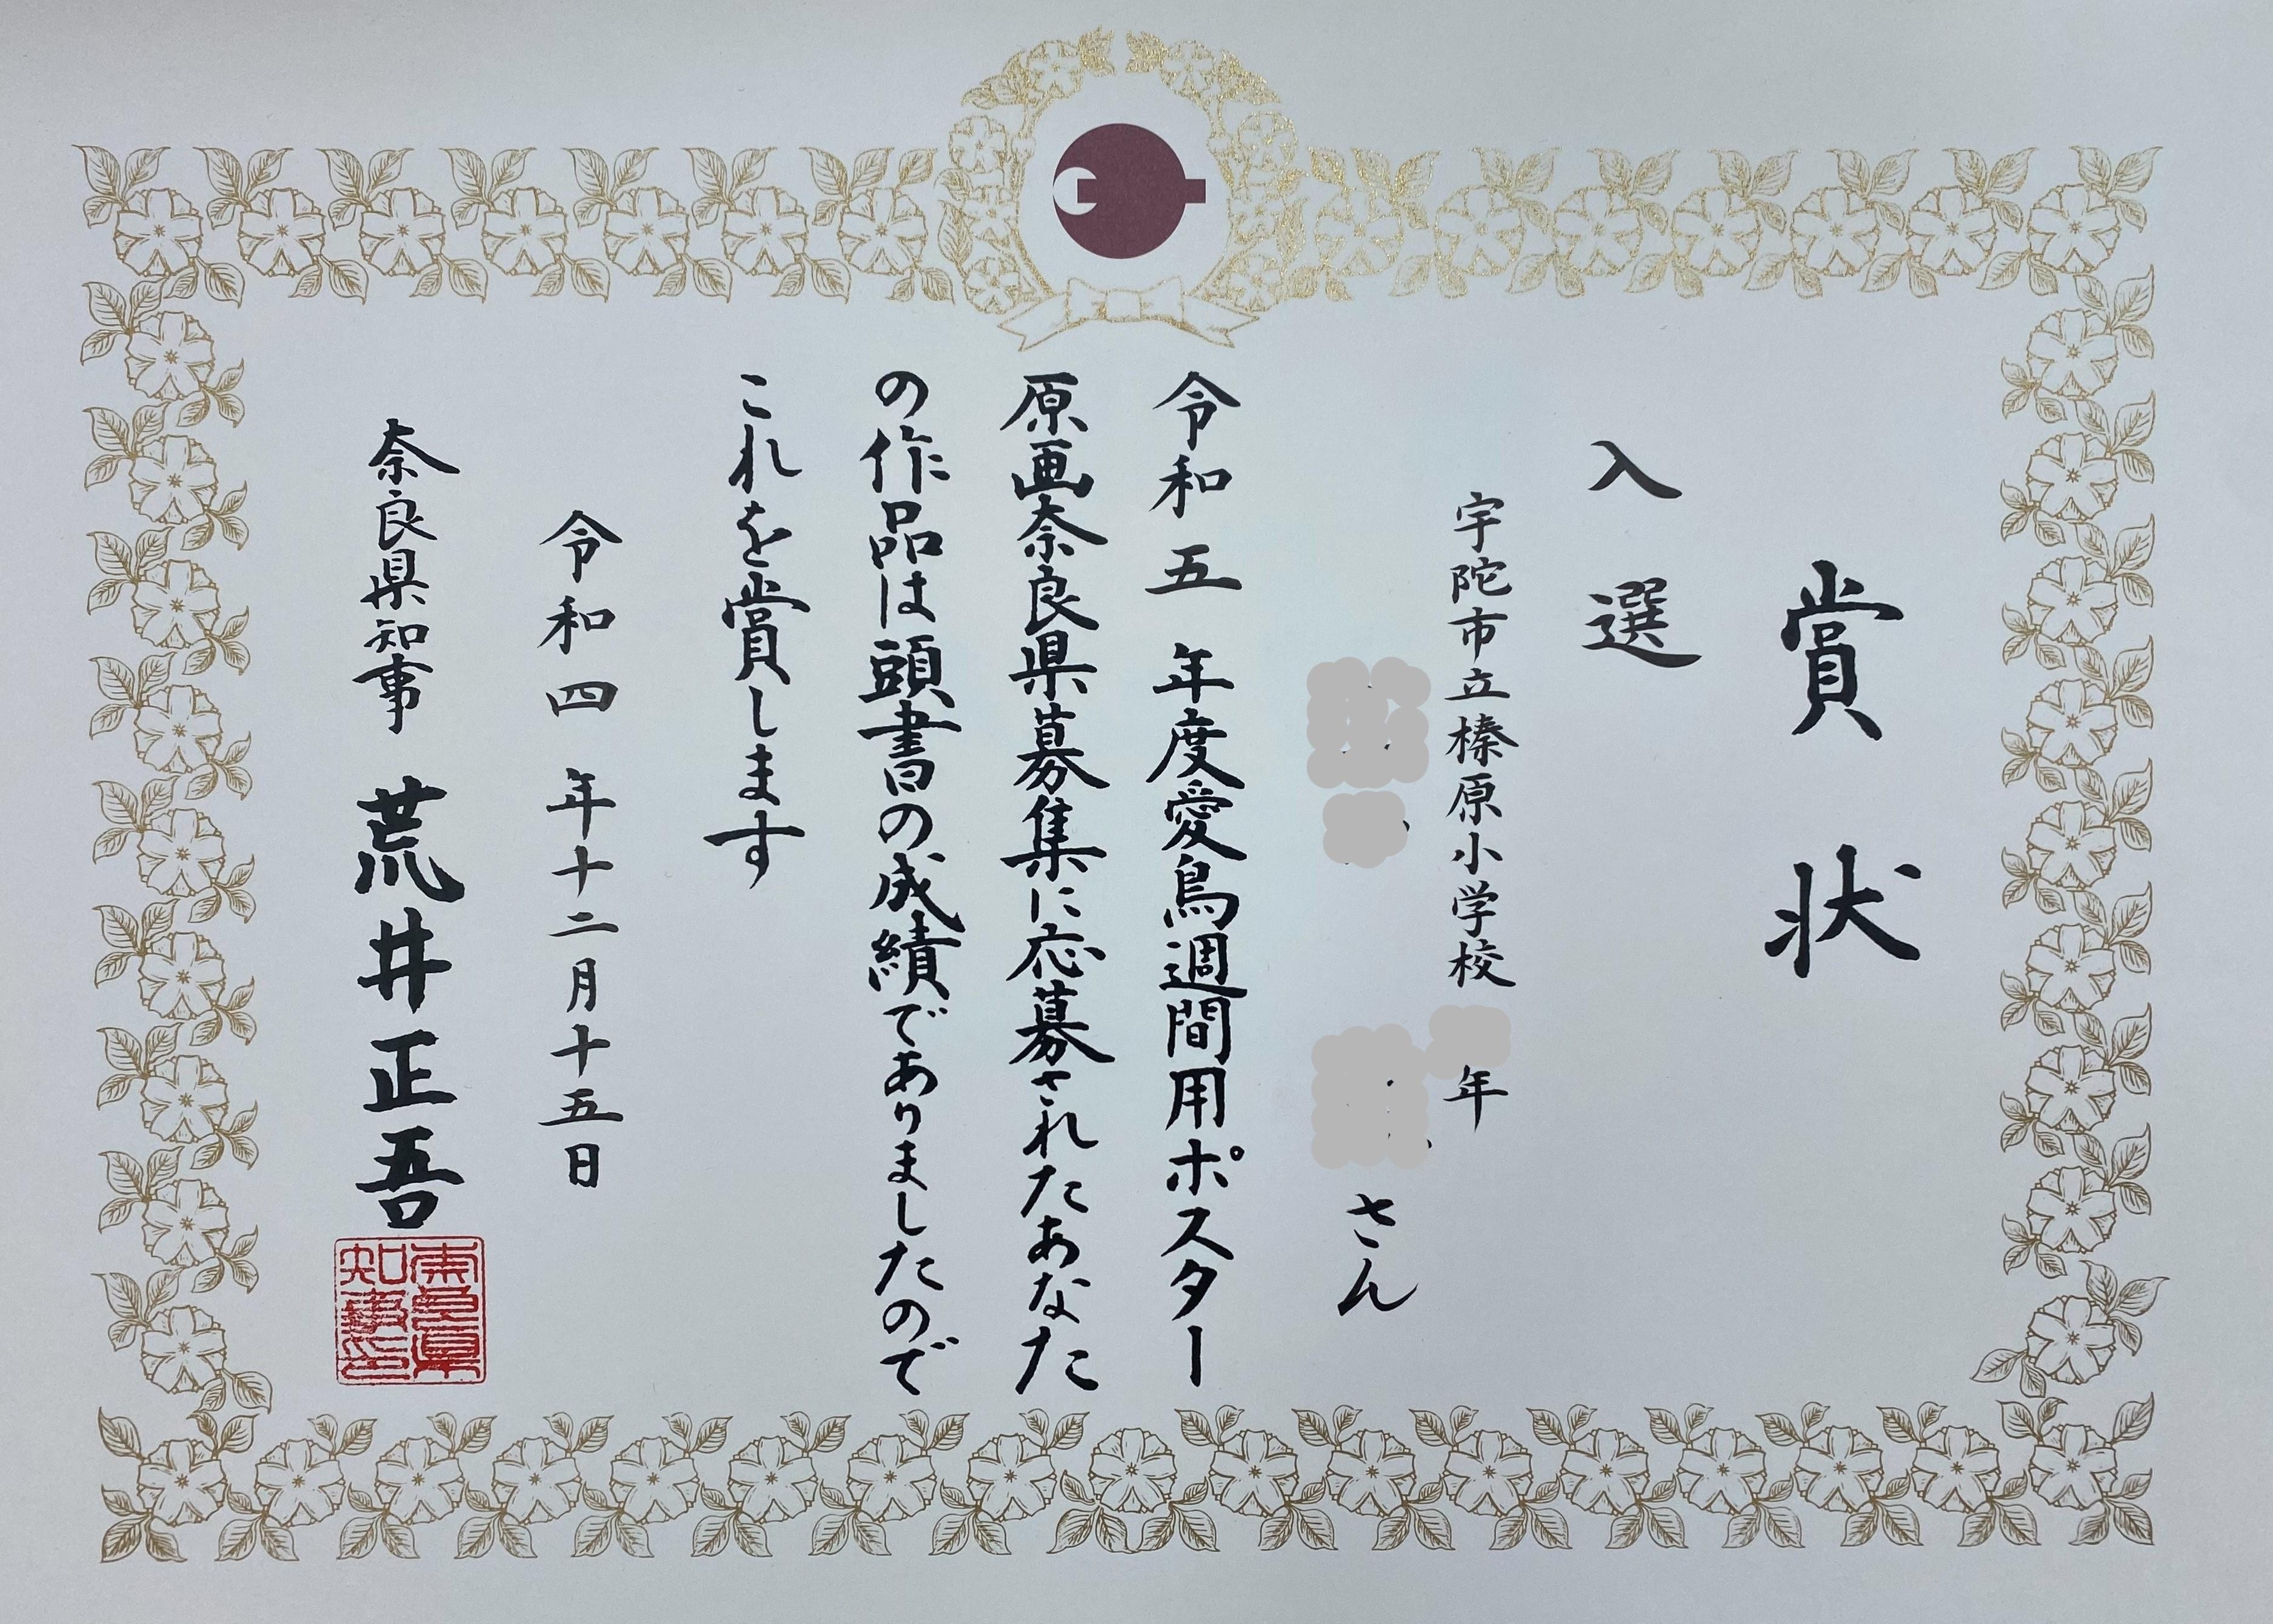 賞状
入選
宇陀市立榛原小学校 年
さん
令和五年度愛鳥週間用ポスター
原画奈良県募集に応募されたあなた
の作品は頭書の成績でありましたので
これを賞します
令和四年十二月十五日
奈良県知事 荒井正吾
奈良県知事印